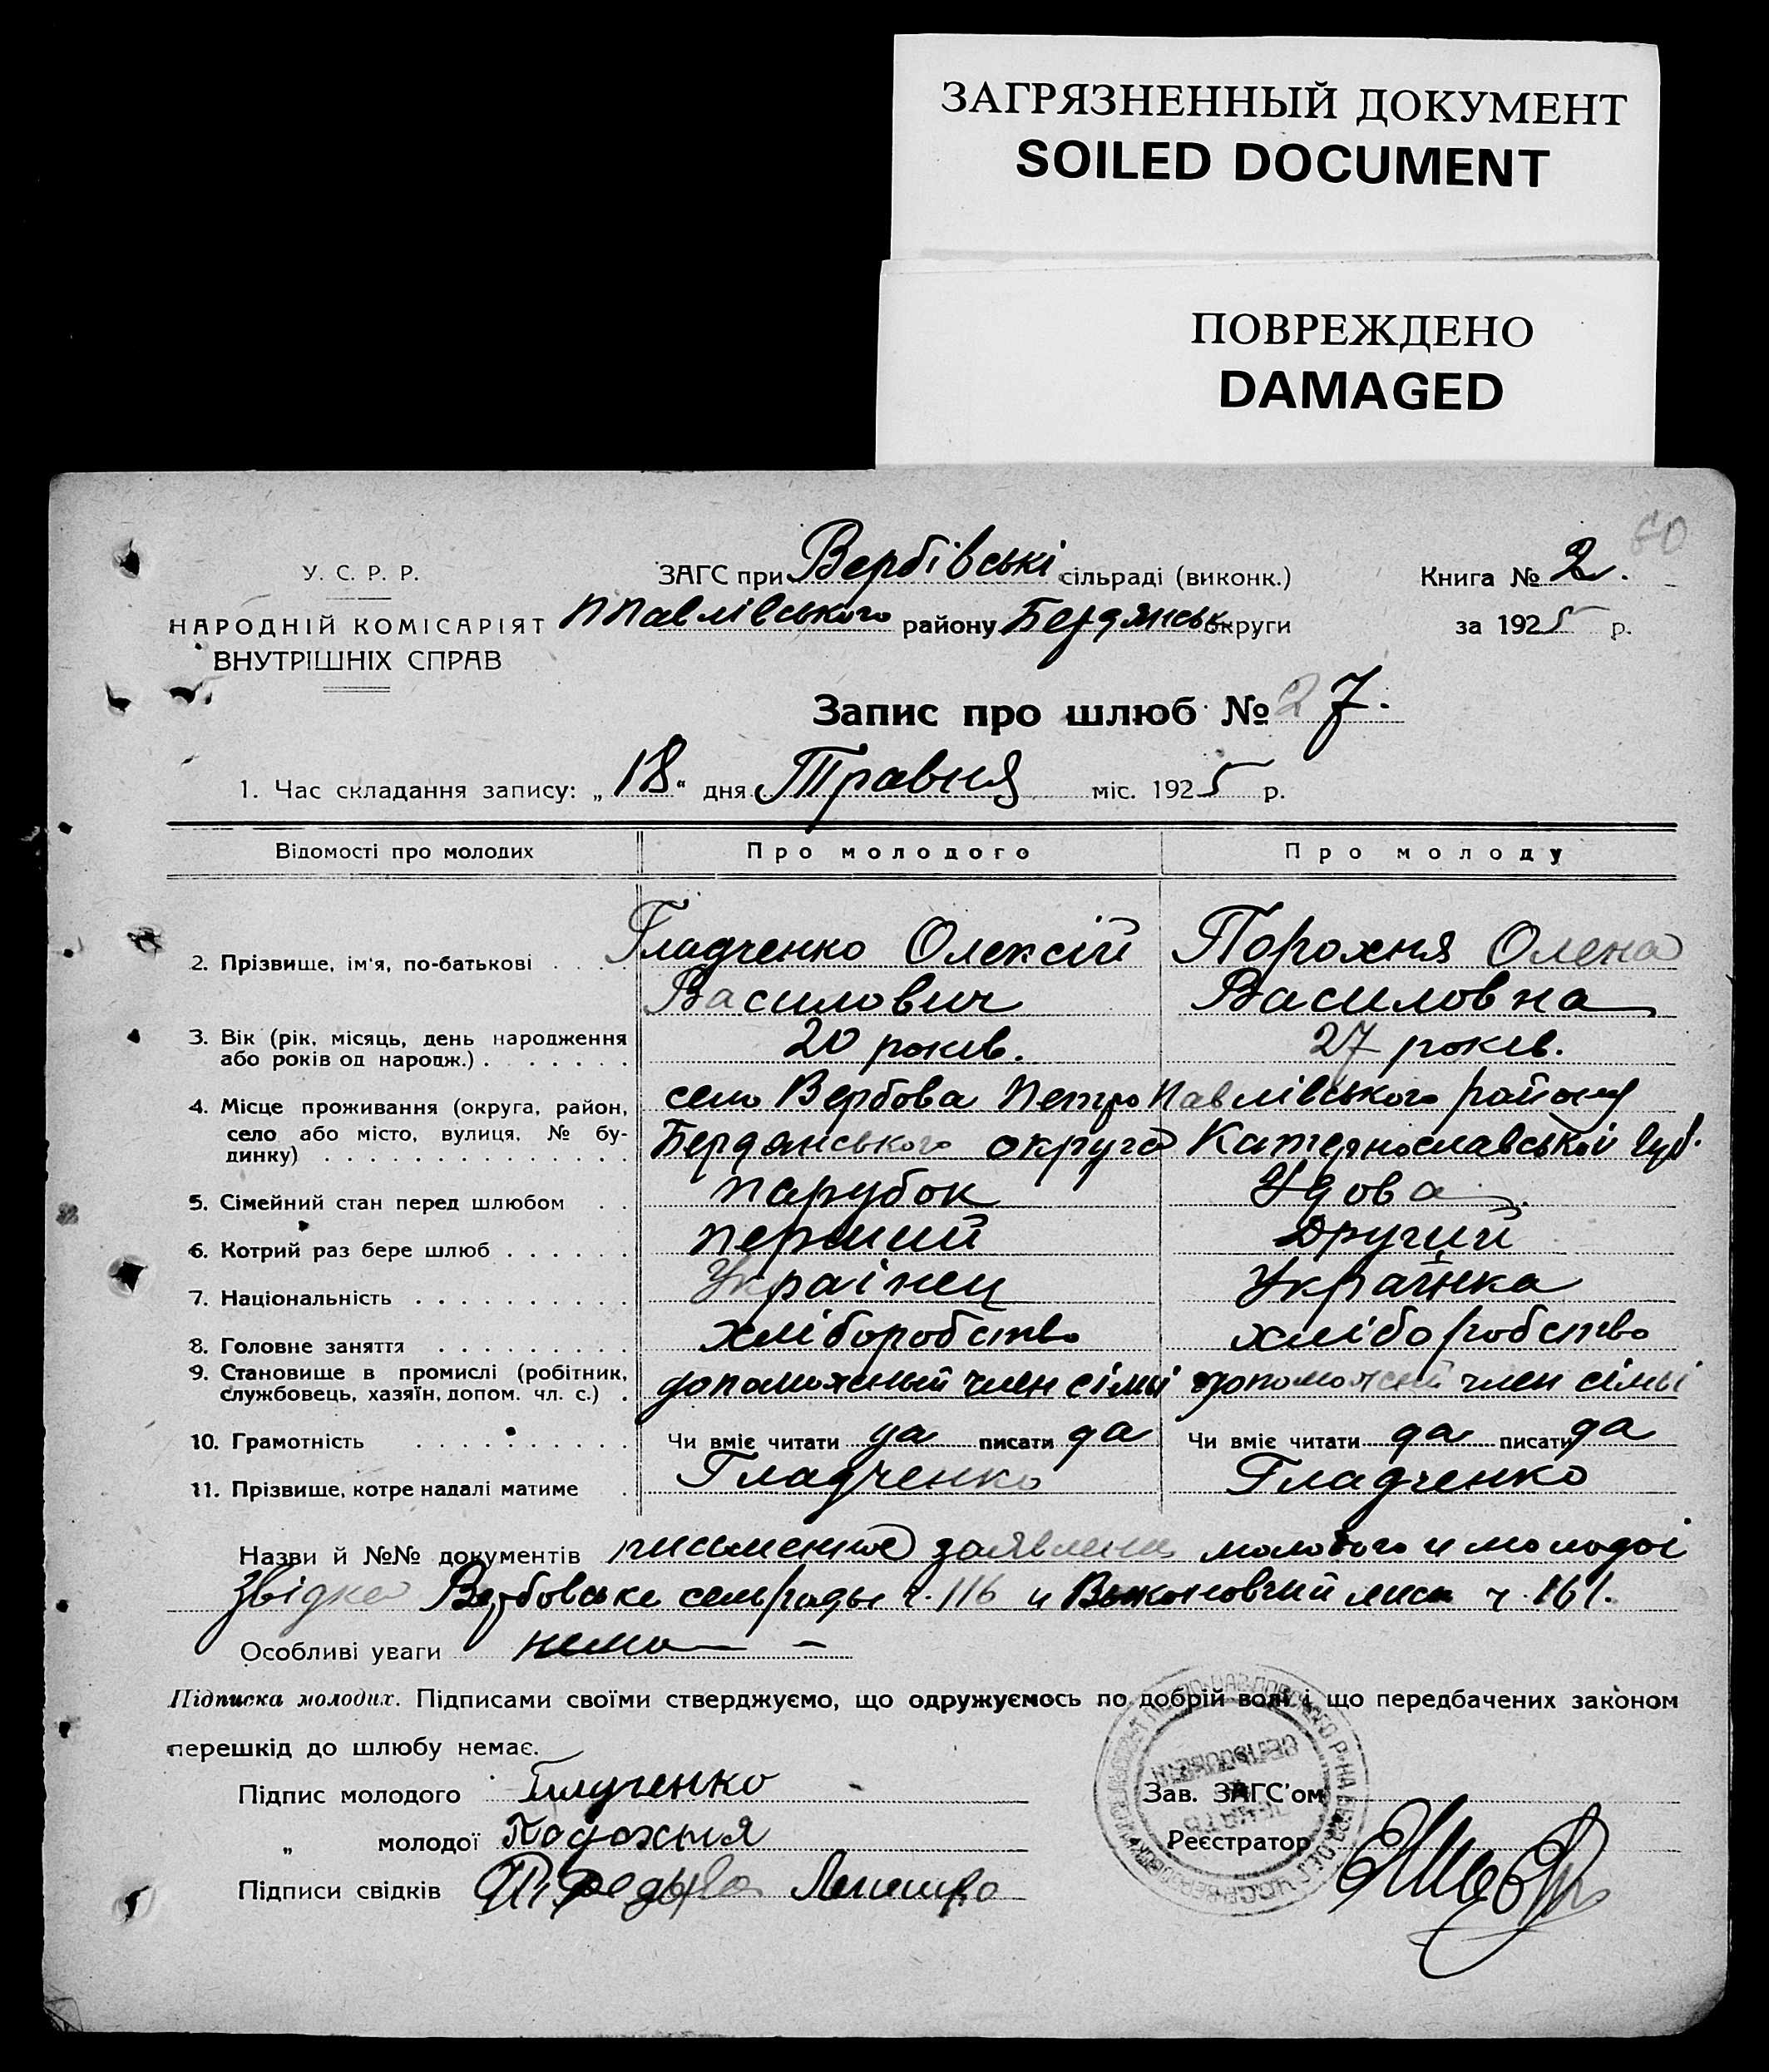 ЗАГРЯЗНЕННЫЙ ДОКУМЕНТ
SOILED DOCUMENT
ПОВРЕЖДЕНО
DAMAGED
60
У. С. Р. Р.
НАРОДНІЙ КОМІСАРІЯТ
ВНУТРІШНІХ СПРАВ
ЗАГС при Вербівські сільраді (виконк.)
ППавлівського району Бердянськ округи
Книга № 2.
за 1925 р.
Запис про шлюб № 27.
1. Час складання запису: „18“ дня Травня міс. 1925 р.
Відомості про молодих Про молодого Про молоду
2. Прізвище, ім'я, по-батькові . . . . Гладченко Олексій Порохня Олена
Василович Василовна
3. Вік (рік, місяць, день народження
або років од народж.) . . . . . . . 20 років. 27 років.
4. Місце проживання (округа, район,
село або місто, вулиця, № бу-
динку) . . . . . . . . . . . . . .
село Вербова ПетроПавлівського району
Бердянського округа Катеринославської губ.
5. Сімейний стан перед шлюбом . . парубок Удова.
6. Котрий раз бере шлюб . . . . . . перший Другий
7. Національність . . . . . . . . . . Українец Українка
8. Головне заняття . . . . . . . . . хліборобство хліборобство
9. Становище в промислі (робітник,
службовець, хазяїн, допом. чл. с.) . допоможный член сімьі допоможний член сімьі
10. Грамотність . . . . . . . . . . Чи вміє читати да писати да Чи вміє читати да писати да
11. Прізвище, котре надалі матиме . Гладченко Гладченко
Назви й №№ документів письменное заявлення молодого и молодоі
Звідка Вербовске сельрады ч. 116 и Выконовчий лист ч. 161.
Особливі уваги нема —
Підписка молодих. Підписами своїми стверджуємо, що одружуємось по добрій волі і що передбачених законом
перешкід до шлюбу немає.
Підпис молодого
„ молодої Порохня
Підписи свідків
Зав. ЗАГС'ом
Реєстратор